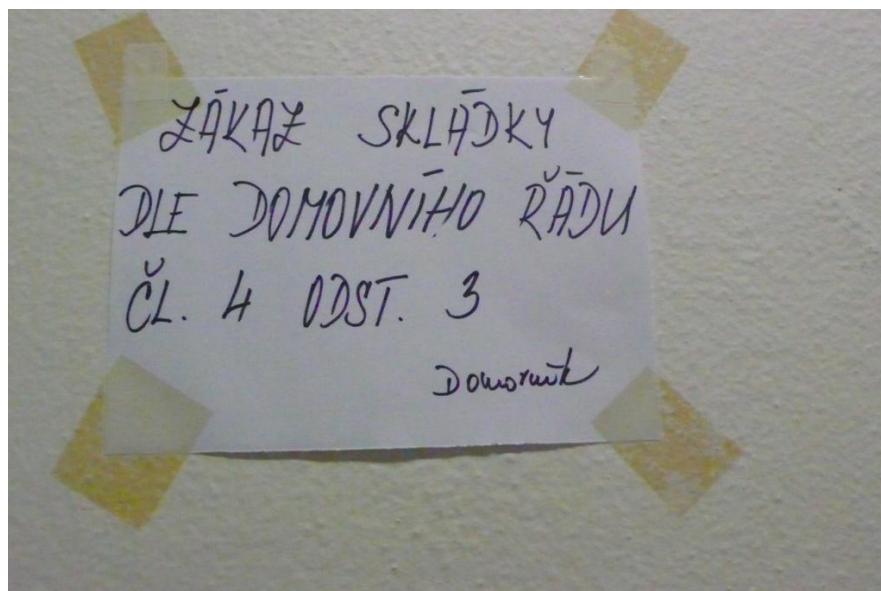 ZÁKAZ SKLÁDKY
DLE DOMOVNÍHO ŘÁDU
ČL. 4 ODST. 3
Domovník